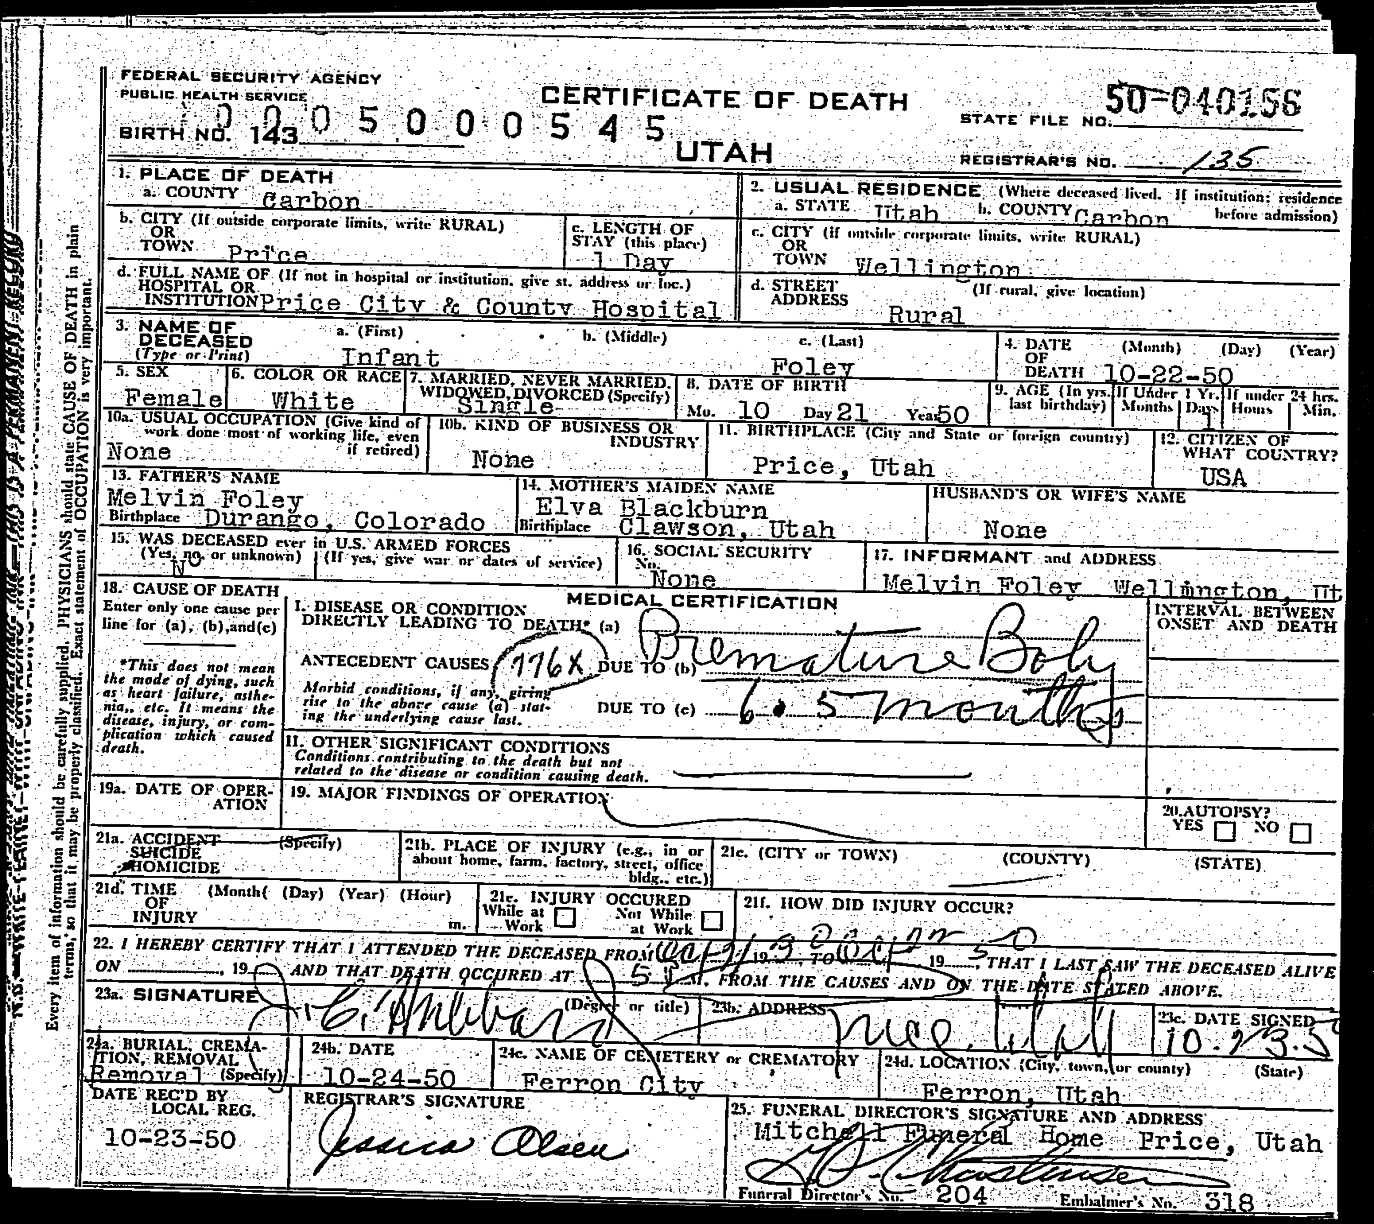 FEDERAL SECURITY AGENCY
PUBLIC HEALTH SERVICE
CERTIFICATE OF DEATH
UTAH
BIRTH NO. 143
0005000545
STATE FILE NO. 50-040156
REGISTRAR'S NO. 135
1. PLACE OF DEATH
a. COUNTY Carbon
b. CITY (If outside corporate limits, write RURAL)
OR
TOWN Price
c. LENGTH OF
STAY (this place)
1 Day
d. FULL NAME OF (If not in hospital or institution, give st. address or loc.)
HOSPITAL OR
INSTITUTION Price City & County Hospital
2. USUAL RESIDENCE (Where deceased lived. If institution: residence
before admission)
a. STATE Utah b. COUNTY Carbon
c. CITY (if outside corporate limits, write RURAL)
OR
TOWN Wellington
d. STREET (If rural, give location)
ADDRESS Rural
3. NAME OF DECEASED (Type or Print)
a. (First) b. (Middle) c. (Last)
Infant Foley
4. DATE OF DEATH (Month) (Day) (Year)
10-22-50
5. SEX
Female
6. COLOR OR RACE
White
7. MARRIED, NEVER MARRIED,
WIDOWED, DIVORCED (Specify)
Single
8. DATE OF BIRTH
Mo. 10 Day 21 Year 50
9. AGE (In yrs. last birthday) If Under 1 Yr. Months Days If under 24 hrs. Hours Min.
1
10a. USUAL OCCUPATION (Give kind of
work done most of working life, even
if retired)
None
10b. KIND OF BUSINESS OR
INDUSTRY
None
11. BIRTHPLACE (City and State or foreign country)
Price, Utah
12. CITIZEN OF
WHAT COUNTRY?
USA
13. FATHER'S NAME
Melvin Foley
Birthplace Durango, Colorado
14. MOTHER'S MAIDEN NAME
Elva Blackburn
Birthplace Clawson, Utah
HUSBAND'S OR WIFE'S NAME
None
15. WAS DECEASED ever in U.S. ARMED FORCES
(Yes, no, or unknown) (If yes, give war or dates of service)
No
16. SOCIAL SECURITY
No.
None
17. INFORMANT and ADDRESS
Melvin Foley Wellington, Ut
18. CAUSE OF DEATH
Enter only one cause per
line for (a), (b), and (c)
*This does not mean
the mode of dying, such
as heart failure, asthe-
nia, etc. It means the
disease, injury, or com-
plication which caused
death.
MEDICAL CERTIFICATION
I. DISEASE OR CONDITION
DIRECTLY LEADING TO DEATH* (a) Premature Boby
ANTECEDENT CAUSES 776X DUE TO (b)
Morbid conditions, if any, giving
rise to the above cause (a) stat-
ing the underlying cause last.
DUE TO (c) 6.5 months
INTERVAL BETWEEN
ONSET AND DEATH
II. OTHER SIGNIFICANT CONDITIONS
Conditions contributing to the death but not
related to the disease or condition causing death.
19a. DATE OF OPER-
ATION
19. MAJOR FINDINGS OF OPERATION
20. AUTOPSY?
YES NO
21a. ACCIDENT (Specify)
SUICIDE
HOMICIDE
21b. PLACE OF INJURY (e.g., in or
about home, farm, factory, street, office
bldg., etc.)
21c. (CITY or TOWN) (COUNTY) (STATE)
21d. TIME (Month) (Day) (Year) (Hour)
OF
INJURY m.
21e. INJURY OCCURED
While at Work Not While at Work
21f. HOW DID INJURY OCCUR?
22. I HEREBY CERTIFY THAT I ATTENDED THE DECEASED FROM Oct 21 19 50 TO Oct 22 19 50, THAT I LAST SAW THE DECEASED ALIVE
ON , 19 AND THAT DEATH OCCURED AT 5 M. FROM THE CAUSES AND ON THE DATE STATED ABOVE.
23a. SIGNATURE (Degree or title)
J. C. Hubbard
23b. ADDRESS
Price, Utah
23c. DATE SIGNED
10-23-50
24a. BURIAL, CREMA-
TION, REMOVAL
Removal (Specify)
24b. DATE
10-24-50
24c. NAME OF CEMETERY or CREMATORY
Ferron City
24d. LOCATION (City, town, or county) (State)
Ferron, Utah
DATE REC'D BY
LOCAL REG.
10-23-50
REGISTRAR'S SIGNATURE
Jessica Olsen
25. FUNERAL DIRECTOR'S SIGNATURE AND ADDRESS
Mitchell Funeral Home Price, Utah
Funeral Director's No. 204 Embalmer's No. 318
Every item of information should be carefully supplied. PHYSICIANS should state CAUSE OF DEATH in plain
terms, so that it may be properly classified. Exact statement of OCCUPATION is very important.